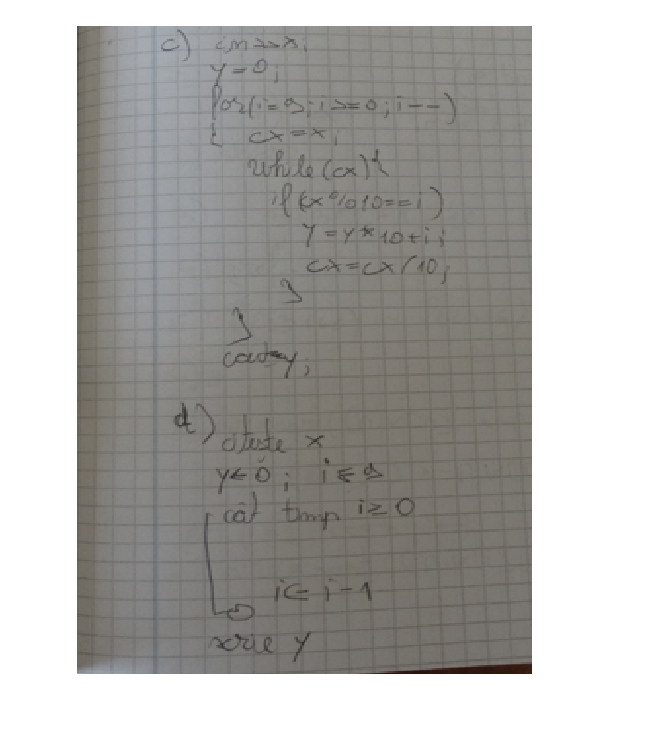 c) in>>x;
y=0;
for(i=9;i>=0;i--)
{ cx=x;
while(cx){
if(cx%10==i)
y=y*10+i;
cx=cx/10;
}
}
cout<<y;
d) citeste x
y←0; i←9
cât timp i≥0
i←i-1
scrie y